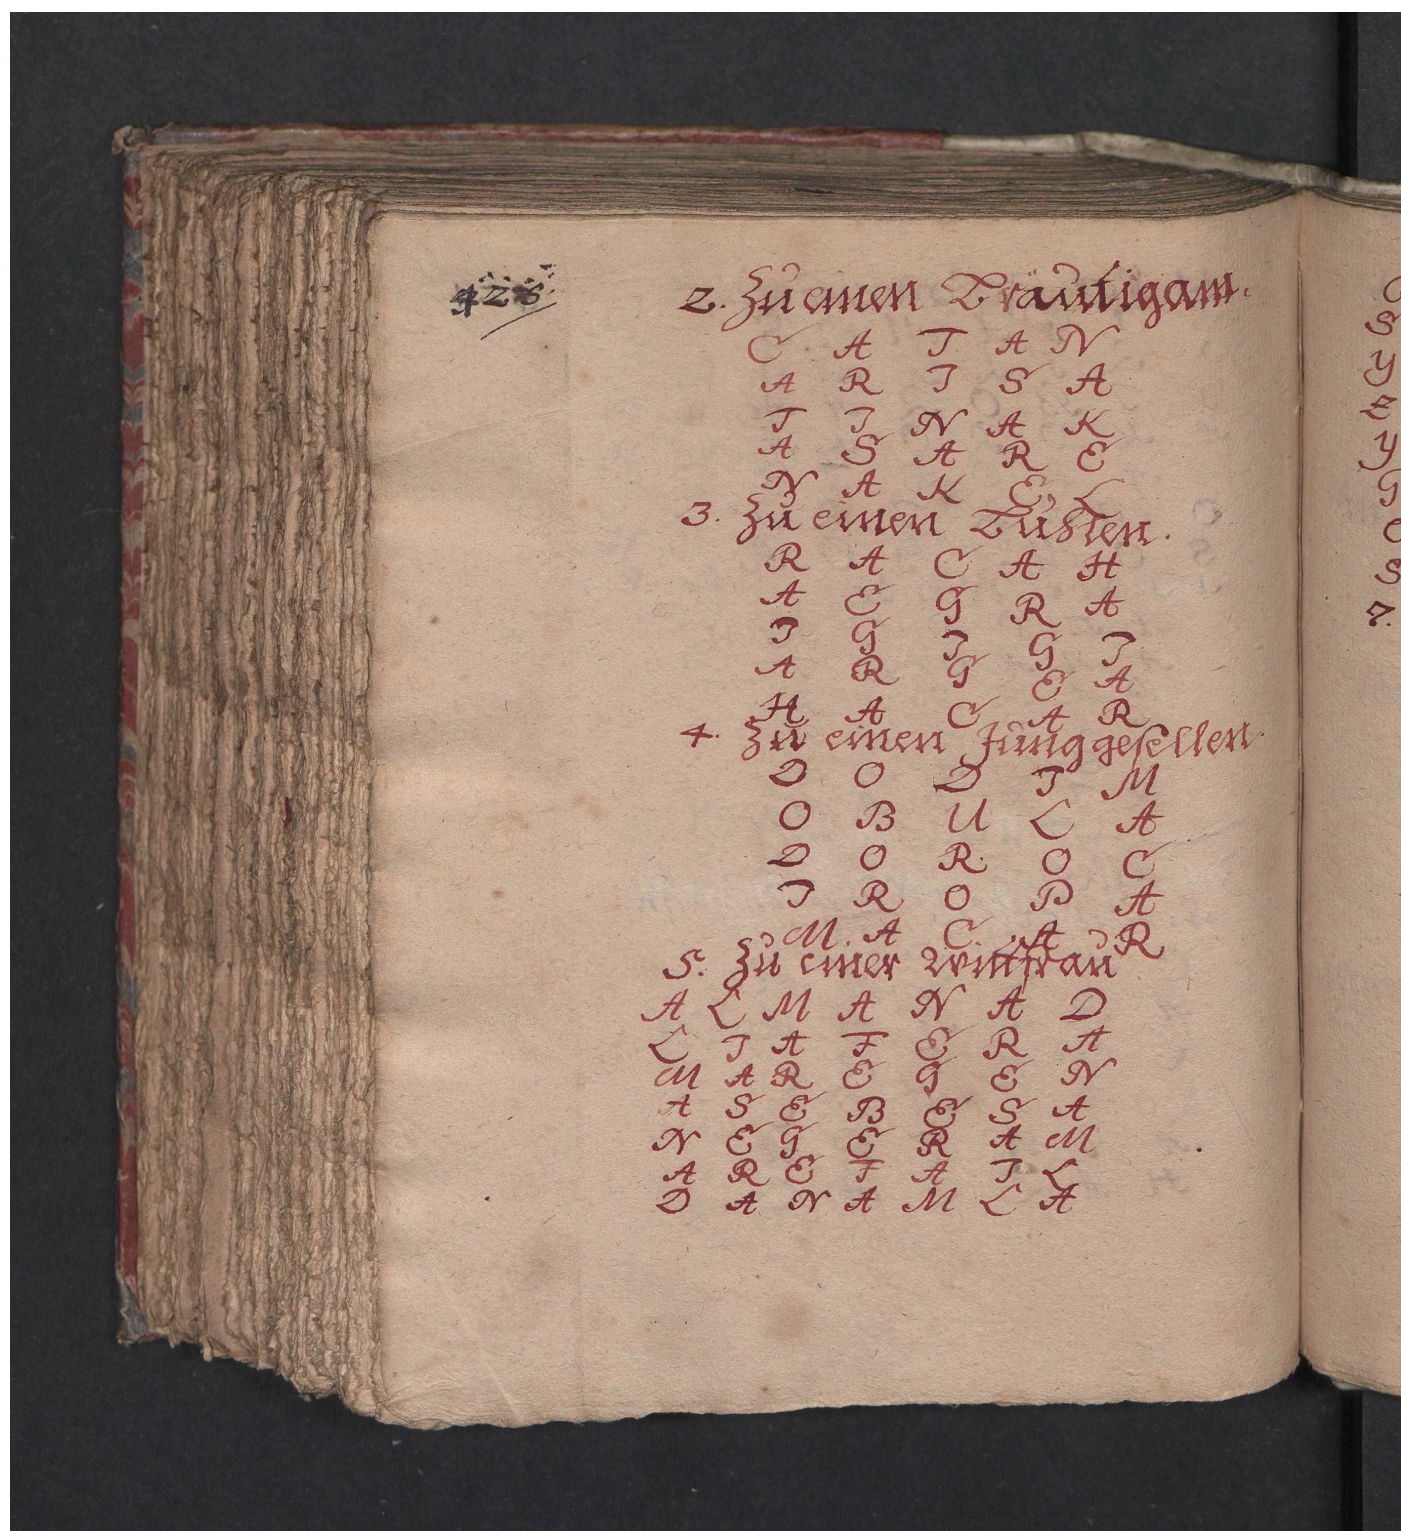 428
2. Zu einen Bräutigam.
C A T A N
A R I S A
T I N A K
A S A R E
N A K E L
3. Zu einen Buhlen.
R A C A H
A E G R A
I G I G I
A R G E A
H A C A R
4. Zu einen Junggesellen
D O D I M
O B U L A
D O R O C
I R O B A
M. A C. A R
5. Zu einer Wittfrau
A L M A N A D
L I A F E R A
M A R E G E N
A S E B E S A
N E G E R A M
A R E F A I L
D A N A M L A
S
Y
Y
G
S
7.